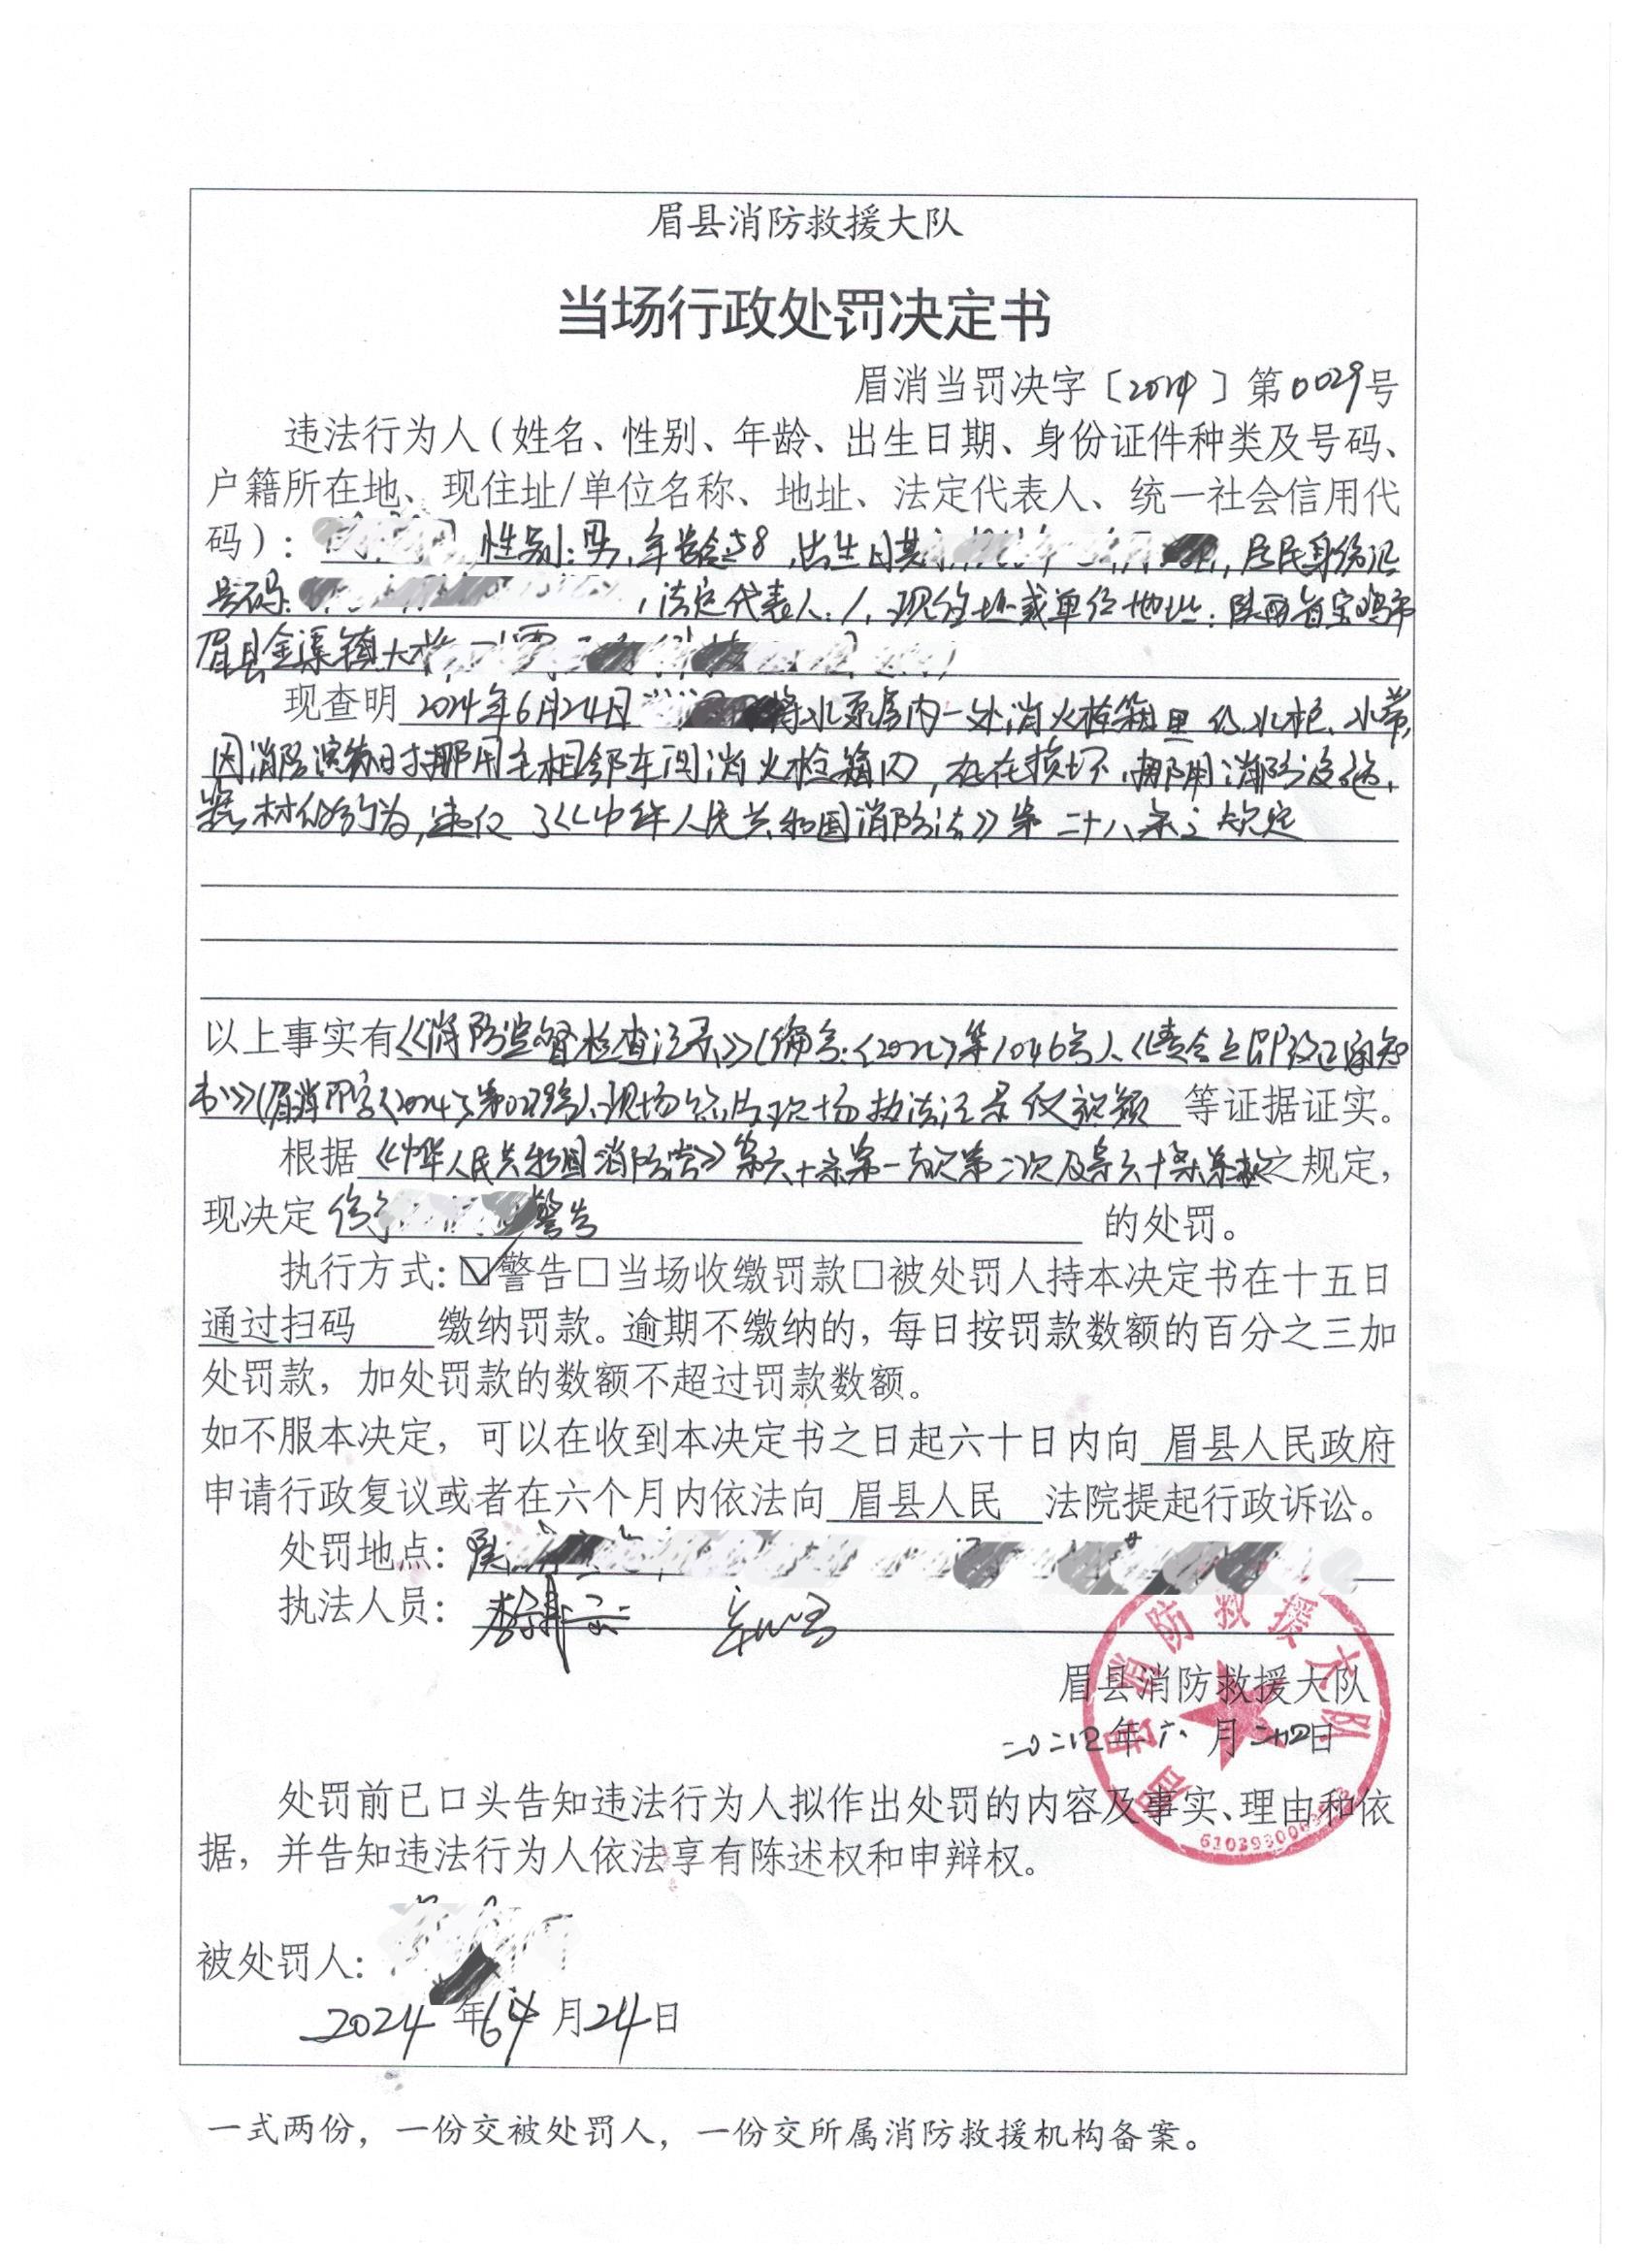 眉县消防救援大队
当场行政处罚决定书
眉消当罚决字〔2024〕第0029号
违法行为人(姓名、性别、年龄、出生日期、身份证件种类及号码、
户籍所在地、现住址/单位名称、地址、法定代表人、统一社会信用代
码): 性别:男,年龄58,出生日期 ,居民身份证
号码: ,法定代表人:/,现住址或单位地址:陕西省宝鸡市
眉县金渠镇
现查明 2024年6月24日 将水泵房内一处消火栓箱里的水枪、水带,
因消防演练时挪用至相邻车间消火栓箱内,存在损坏、挪用消防设施、
器材的行为,违反了《中华人民共和国消防法》第二十八条之规定
以上事实有《消防监督检查记录》(编号: 第1046号)、《责令立即改正通知
书》( 〔2024〕第 号)、现场 现场执法记录仪视频 等证据证实。
根据《中华人民共和国消防法》第六十条第一款第二项及第六十条第 款之规定,
现决定 给予 警告 的处罚。
执行方式:☑警告□当场收缴罚款□被处罚人持本决定书在十五日
通过扫码 缴纳罚款。逾期不缴纳的,每日按罚款数额的百分之三加
处罚款,加处罚款的数额不超过罚款数额。
如不服本决定,可以在收到本决定书之日起六十日内向 眉县人民政府
申请行政复议或者在六个月内依法向 眉县人民 法院提起行政诉讼。
处罚地点:
执法人员:
眉县消防救援大队
年六月 日
眉县消防救援大队
处罚前已口头告知违法行为人拟作出处罚的内容及事实、理由和依
据,并告知违法行为人依法享有陈述权和申辩权。
被处罚人:
2024年 月24日
一式两份,一份交被处罚人,一份交所属消防救援机构备案。